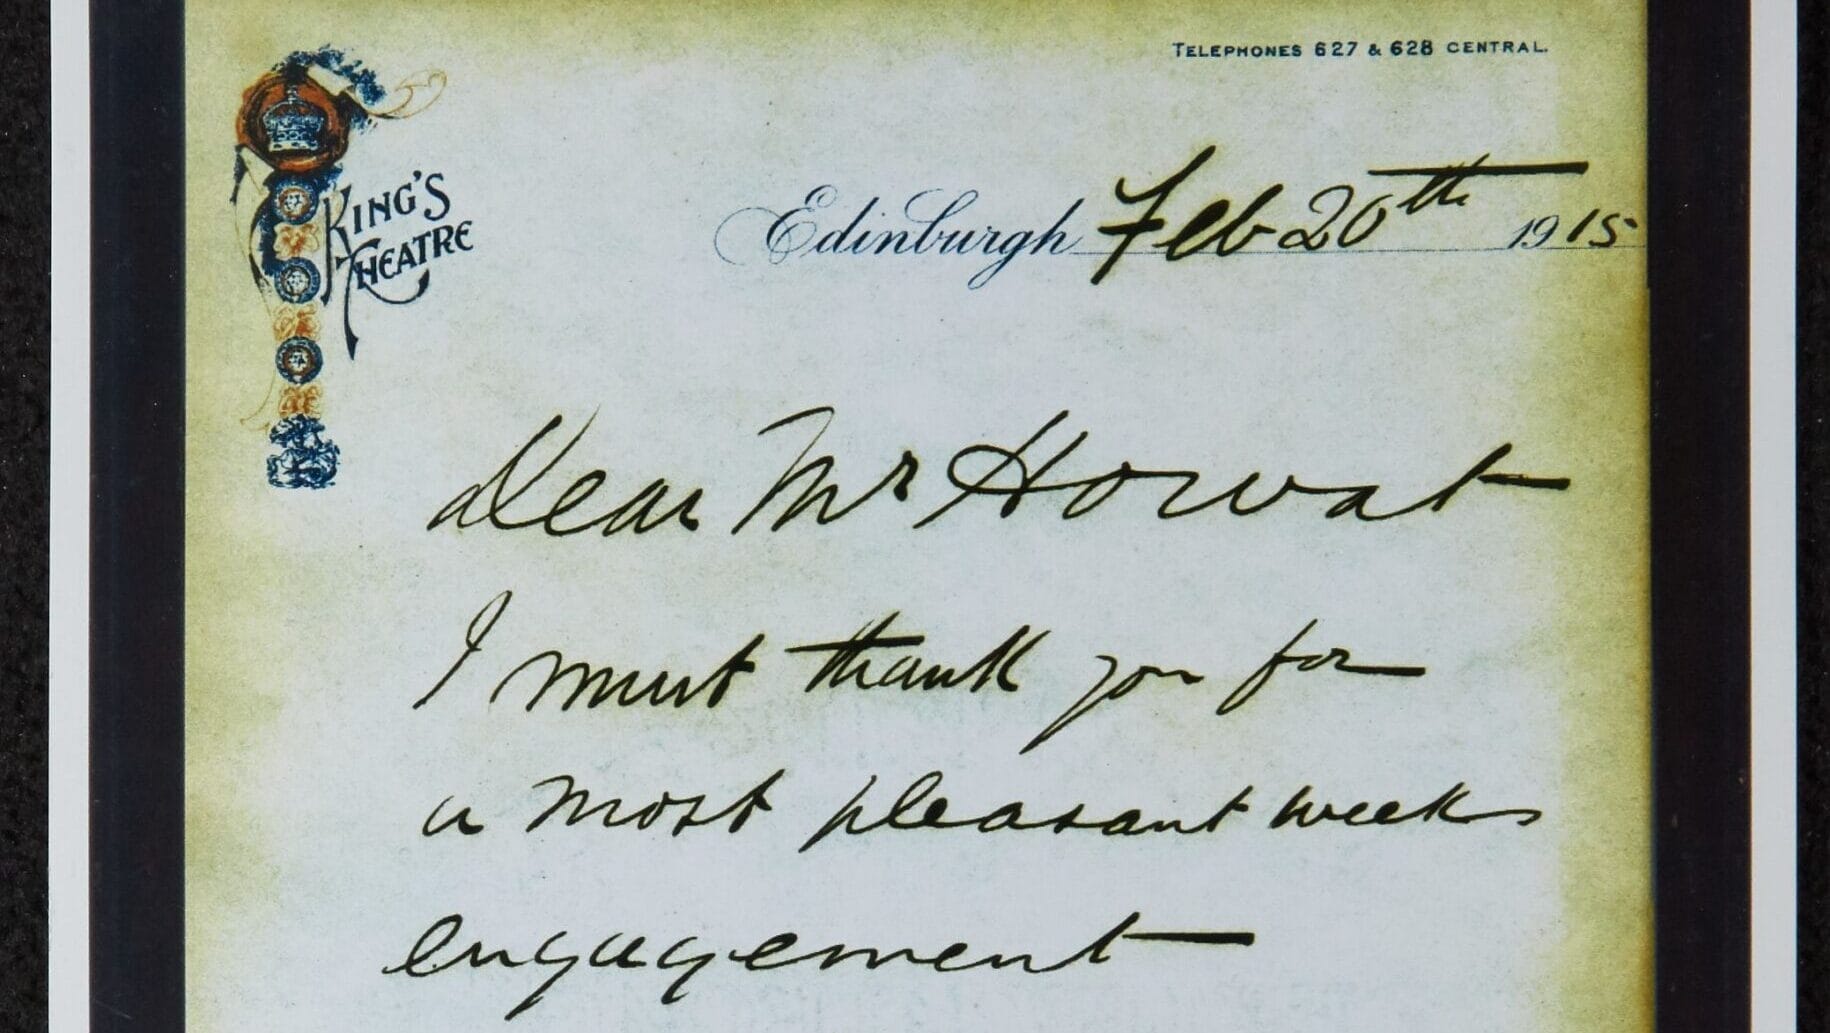 TELEPHONES 627 & 628 CENTRAL.
KING'S
THEATRE
Edinburgh Feb 20th 1915
Dear Mr Howat
I must thank you for
a most pleasant weeks
engagement